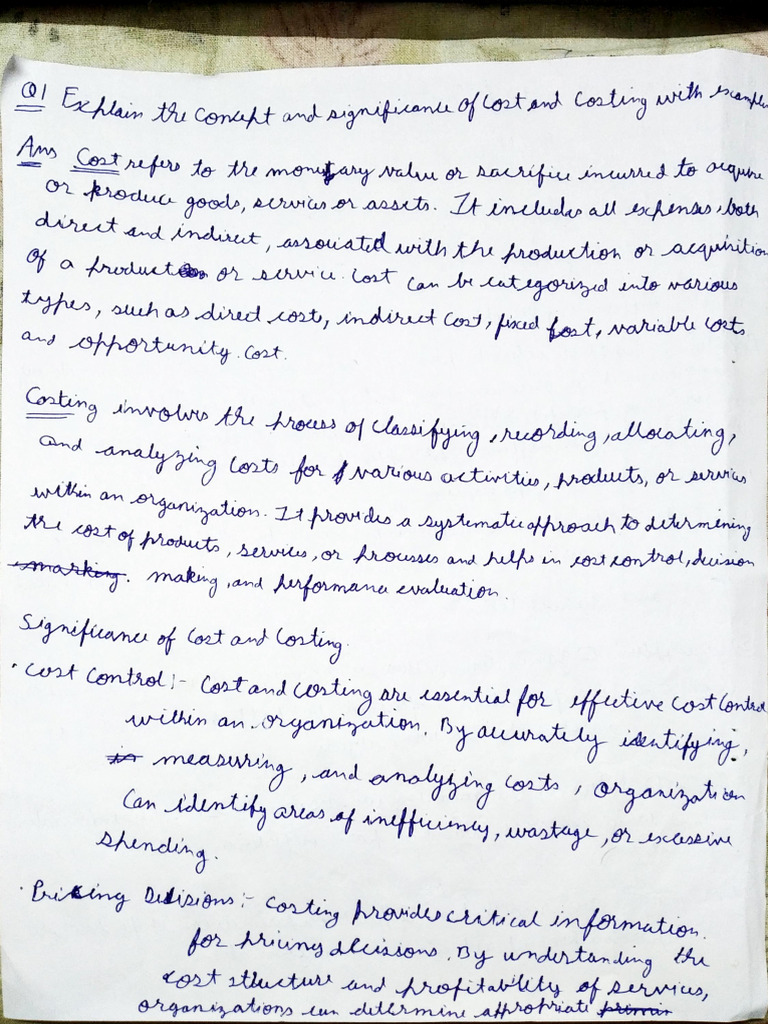 Q1 Explain the concept and significance of cost and costing with example
Ans Cost refers to the monetary value or sacrifice incurred to acquire
or produce goods, services or assets. It includes all expenses, both
direct and indirect, associated with the production or acquisition
of a product or service. Cost can be categorized into various
types, such as direct cost, indirect cost, fixed cost, variable costs
and opportunity cost.
Costing involves the process of classifying, recording, allocating,
and analyzing costs for various activities, products, or services
within an organization. It provides a systematic approach to determining
the cost of products, services, or processes and helps in cost control, decision
marking. making, and performance evaluation.
Significance of cost and costing.
· Cost Control :- Cost and costing are essential for effective cost control
within an organization. By accurately identifying,
in measuring, and analyzing costs, organization
can identify areas of inefficiency, wastage, or excessive
spending.
· Pricing Decisions :- Costing provides critical information
for pricing decisions. By understanding the
cost structure and profitability of services,
organizations can determine appropriate